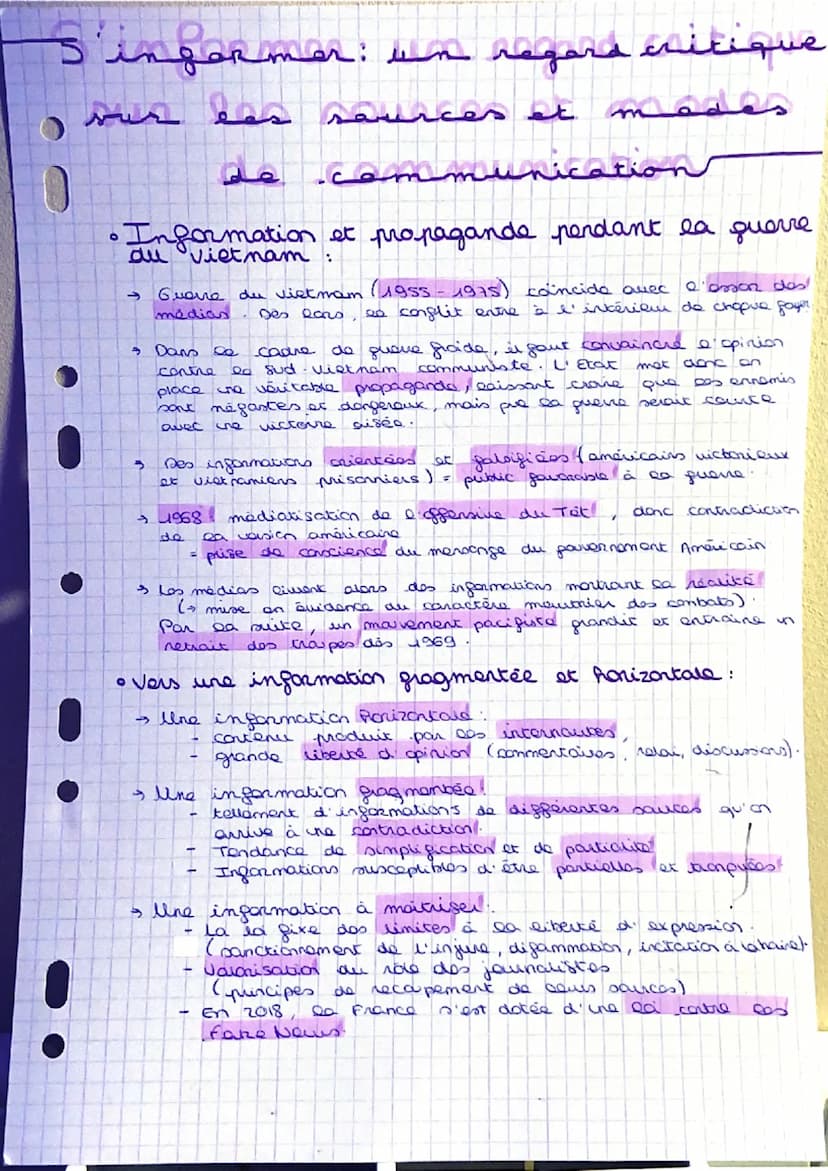 S'informer : un regard critique
sur les sources et modes
de communication
• Information et propagande pendant la guerre
du Vietnam :
→ Guerre du Vietnam (1955 - 1975) coïncide avec l'essor des
médias. Dès lors, le conflit entre à l'intérieur de chaque foyer
→ Dans le cadre de guerre froide, il faut convaincre l'opinion
contre le Sud-Vietnam communiste. L'Etat met donc en
place une véritable propagande, laissant croire que les ennemis
sont néfastes et dangereux, mais que la guerre serait courte
avec une victoire aisée.
→ Des informations orientées et falsifiées (américains victorieux
et vietnamiens prisonniers) = public favorable à la guerre.
→ 1968 : médiatisation de l'offensive du Têt, donc contradiction
de la version américaine
= prise de conscience du mensonge du gouvernement Américain
→ Les médias livrent alors des informations montrant la réalité
(→ mise en évidence du caractère meurtrier des combats).
Par la suite, un mouvement pacifiste grandit et entraîne un
retrait des troupes dès 1969.
• Vers une information fragmentée et horizontale :
→ Une information horizontale :
- contenu produit par les internautes,
- grande liberté d'opinion (commentaires, relai, discussions).
→ Une information fragmentée :
- tellement d'informations de différentes sources qu'on
arrive à une contradiction.
- Tendance de simplification et de partialité
- Informations susceptibles d'être partielles et tronquées
→ Une information à maîtriser :
- La loi fixe des limites à la liberté d'expression.
(sanctionnement de l'injure, diffammation, incitation à la haine).
- Valorisation du rôle des journalistes
(principes de recoupement de leurs sources)
- En 2018, la France s'est dotée d'une loi contre les
Fake News.